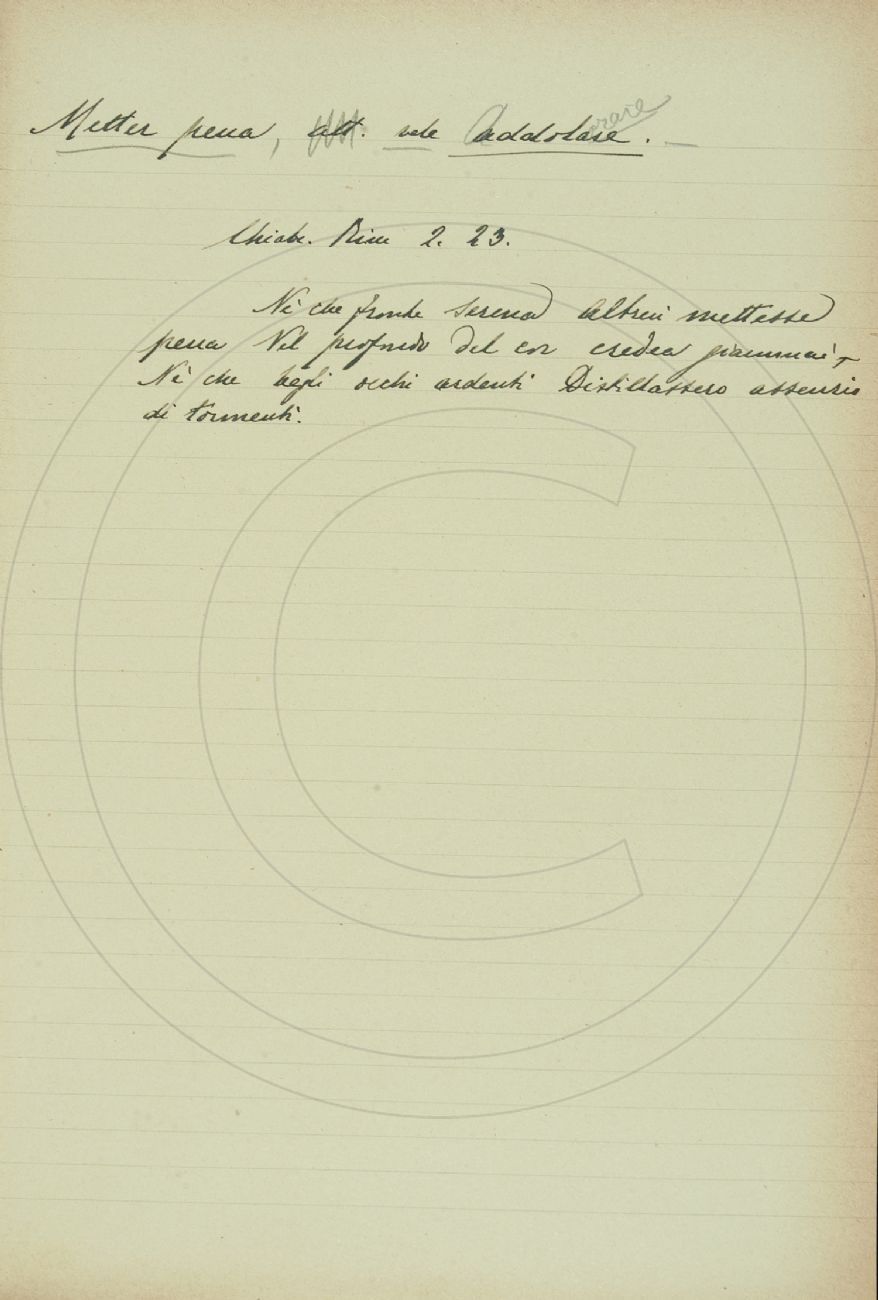 Metter pena, att. vale Addolare. orare
Chiabr. Rim 2. 23.
Nè che fronte serena Altrui mettesse
pena Nel profondo del cor credea giammai,
Nè che begli occhi ardenti Distillassero assenzio
di tormenti.